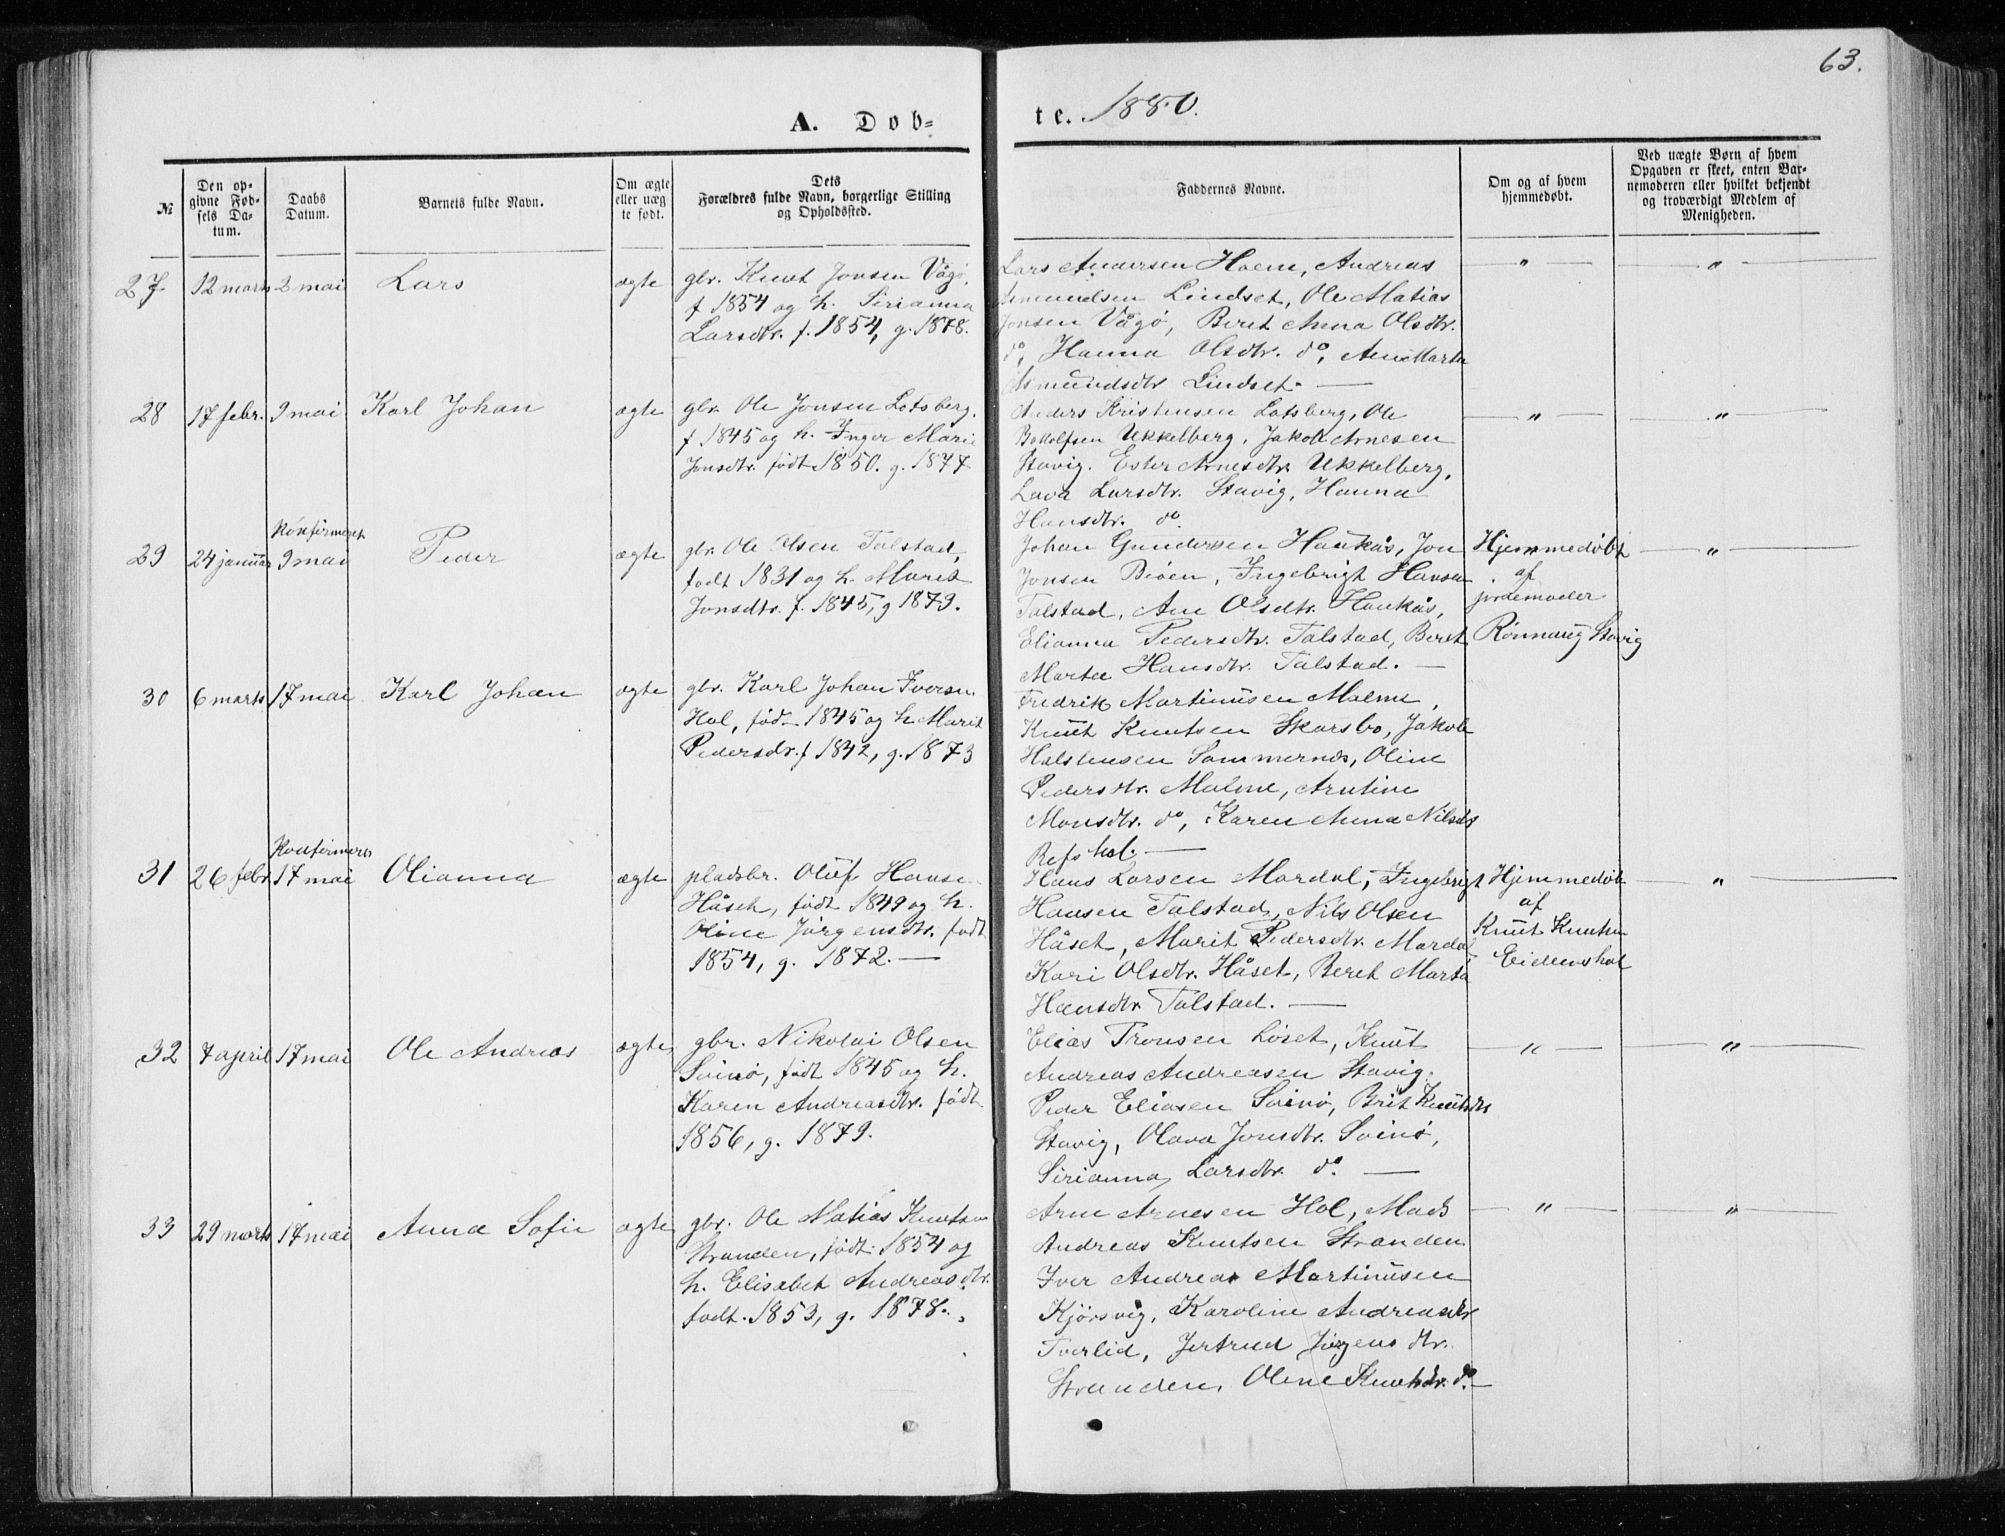 63.
A. Døb=
te. 1880.
№
Den op=
givne Fød=
sels Da=
tum.
Daabs
Datum.
Barnets fulde Navn.
Om ægte
eller uæg
te født.
Dets
Forældres fulde Navn, borgerlige Stilling
og Opholdssted.
Faddernes Navne.
Om og af hvem
hjemmedøbt.
Ved uægte Børn af hvem
Opgaven er skeet, enten Bar-
nemoderen eller hvilket bekjendt
og troværdigt Medlem af
Menigheden.
27 12 marts 2 mai Lars ægte
gbr. Knut Jonsen Vågø,
f 1854 og h. Sirianna
Larsdtr. f. 1854, g. 1878.
Lars Andersen Hoem, Andreas
Asmundsen Lindset, Ole Matias
Jonsen Vågø, Beret Anna Olsdtr.
do, Hanna Olsdtr. do, Ane Marta
Asmundsdtr Lindset. —
— " — — " —
28 17 febr. 9 mai Karl Johan ægte
gbr. Ole Jonsen Lotsberg,
f. 1845 og h. Inger Marie
Jonsdtr. født 1850. g. 1877
Anders Kristensen Lotsberg, Ole
Bottolfsen Ukkelberg, Jakob Arnesen
Stavig. Ester Arnesdtr. Ukkelberg,
Lava Larsdtr. Stavig, Hanna
Hansdtr. do.
— " — — " —
29 24 januar Konfirmeret
9 mai Peder ægte
gbr. Ole Olsen Talstad,
født 1831 og h. Marit
Jonsdtr. f. 1845, g 1879.
Johan Gundersen Haukås, Jon
Jonsen Bøen, Ingebrigt Hansen
Talstad, Ane Olsdtr. Haukås,
Elianna Pedersdtr. Talstad, Beret
Marta Hansdtr. Talstad. —
Hjemmedøbt
af
jordemoder
Rønnaug Stavig
— " —
30 6 marts 17 mai Karl Johan ægte
gbr. Karl Johan Iversen
Hol, født 1845 og h. Marit
Pedersdr. f 1842, g. 1873
Fredrik Martinusen Malme,
Knut Knutsen Skarsbo, Jakob
Halstensen Sommernes, Oline
Pedersdtr. Malme,
Monsdtr. do, Karen Anna Nilsdtr
Refshol. —
31 26 febr. Konfirmeret
17 mai Olianna ægte
pladsbr. Oluf Hansen
Håset, født 1849 og h.
Oline Jørgensdtr. født
1854, g. 1872. —
Hans Larsen Mordal, Ingebrigt
Hansen Talstad, Nils Olsen
Håset, Marit Pedersdtr. Mordal,
Kari Olsdtr. Håset, Beret Marta
Hansdtr. Talstad. —
Hjemmedøbt
af
Knut Knutsen
Eidemshol
— " —
32 7 april 17 mai Ole Andreas ægte
gbr. Nikolai Olsen
Svinø, født 1845 og h.
Karen Andreasdtr. født
1856, g. 1879.
Elias Tronsen Løset, Knut
Andreas Andreasen Stavig.
Peder Eliasen Svinø, Brit Knutsdtr
Stavig, Olava Jonsdtr. Svinø,
Sirianna Larsdtr. do. —
— " — — " —
33 29 marts 17 mai Anna Sofie ægte
gbr. Ole Matias Knutsen
Stranden, født 1854 og
h. Elisabet Andreasdtr.
født. 1853, g. 1878.
Arne Arnesen Hol, Mads
Andreas Knutsen Stranden
Iver Andreas Martinusen
Kjørsvig, Karoline Andreasdtr
Tverlid, Jertrud Jørgensdtr.
Stranden, Oline Knutsdtr. do. —
— " — — " —